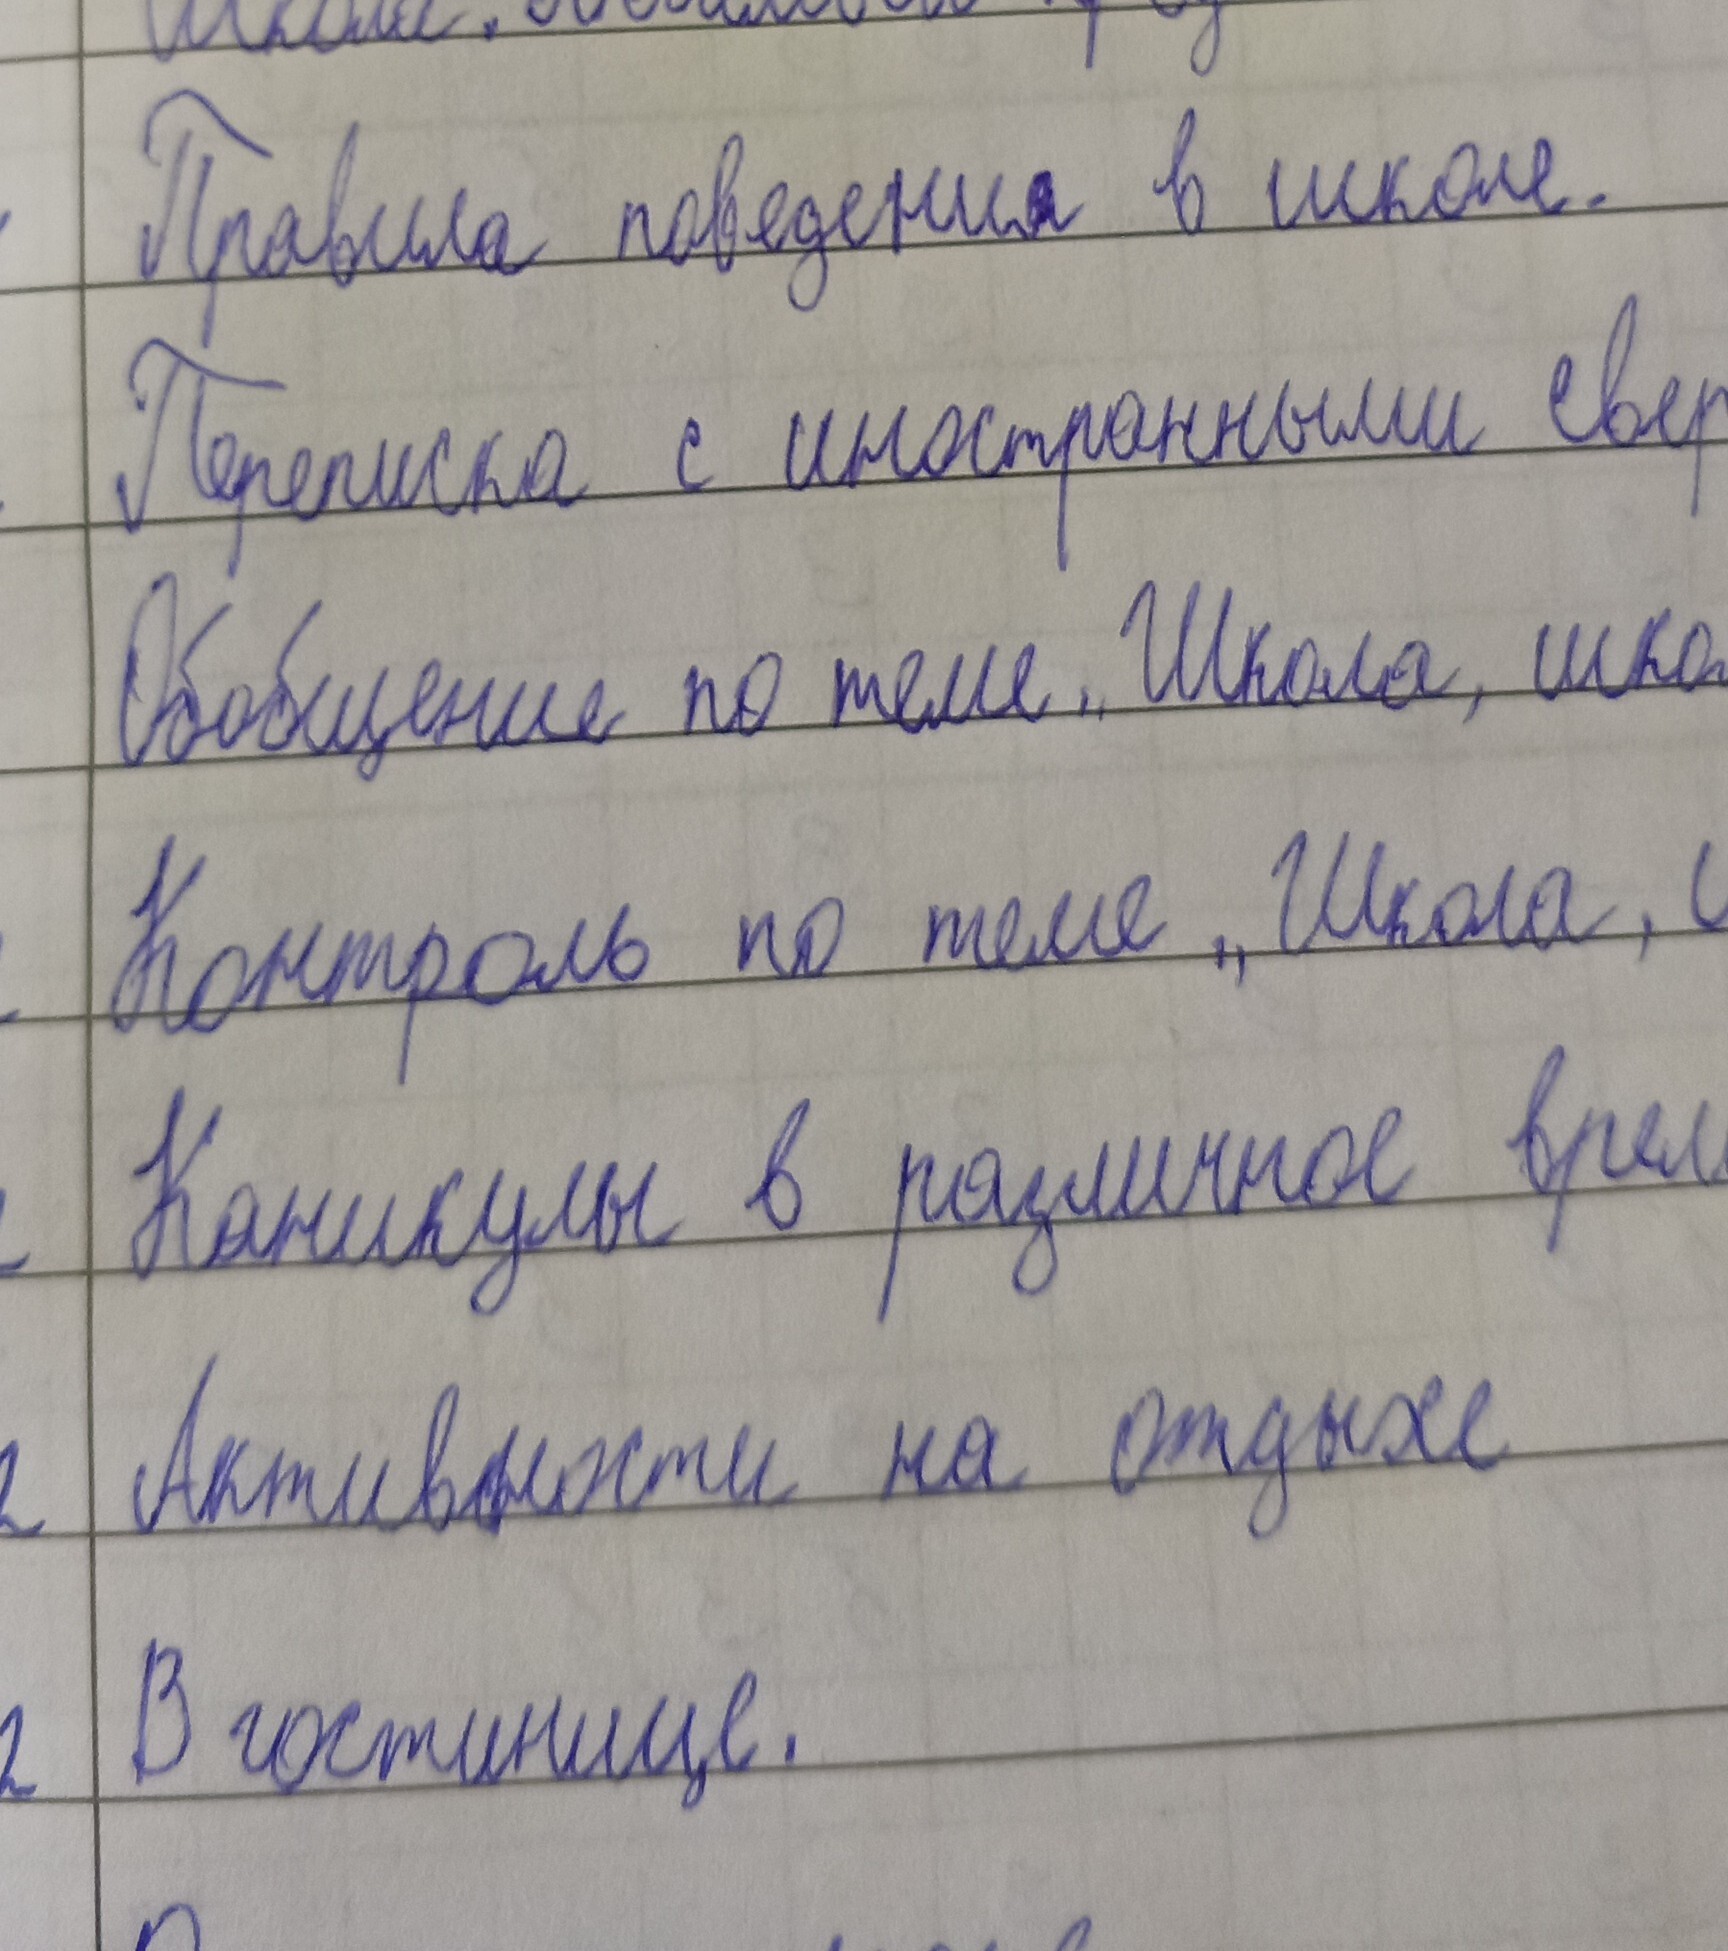 Правила поведения в школе.
Переписка с иностранными свер
Обобщение по теме „Школа, шко
Контроль по теме „Школа,
Каникулы в различное врем
Активности на отдыхе
В гостинице.